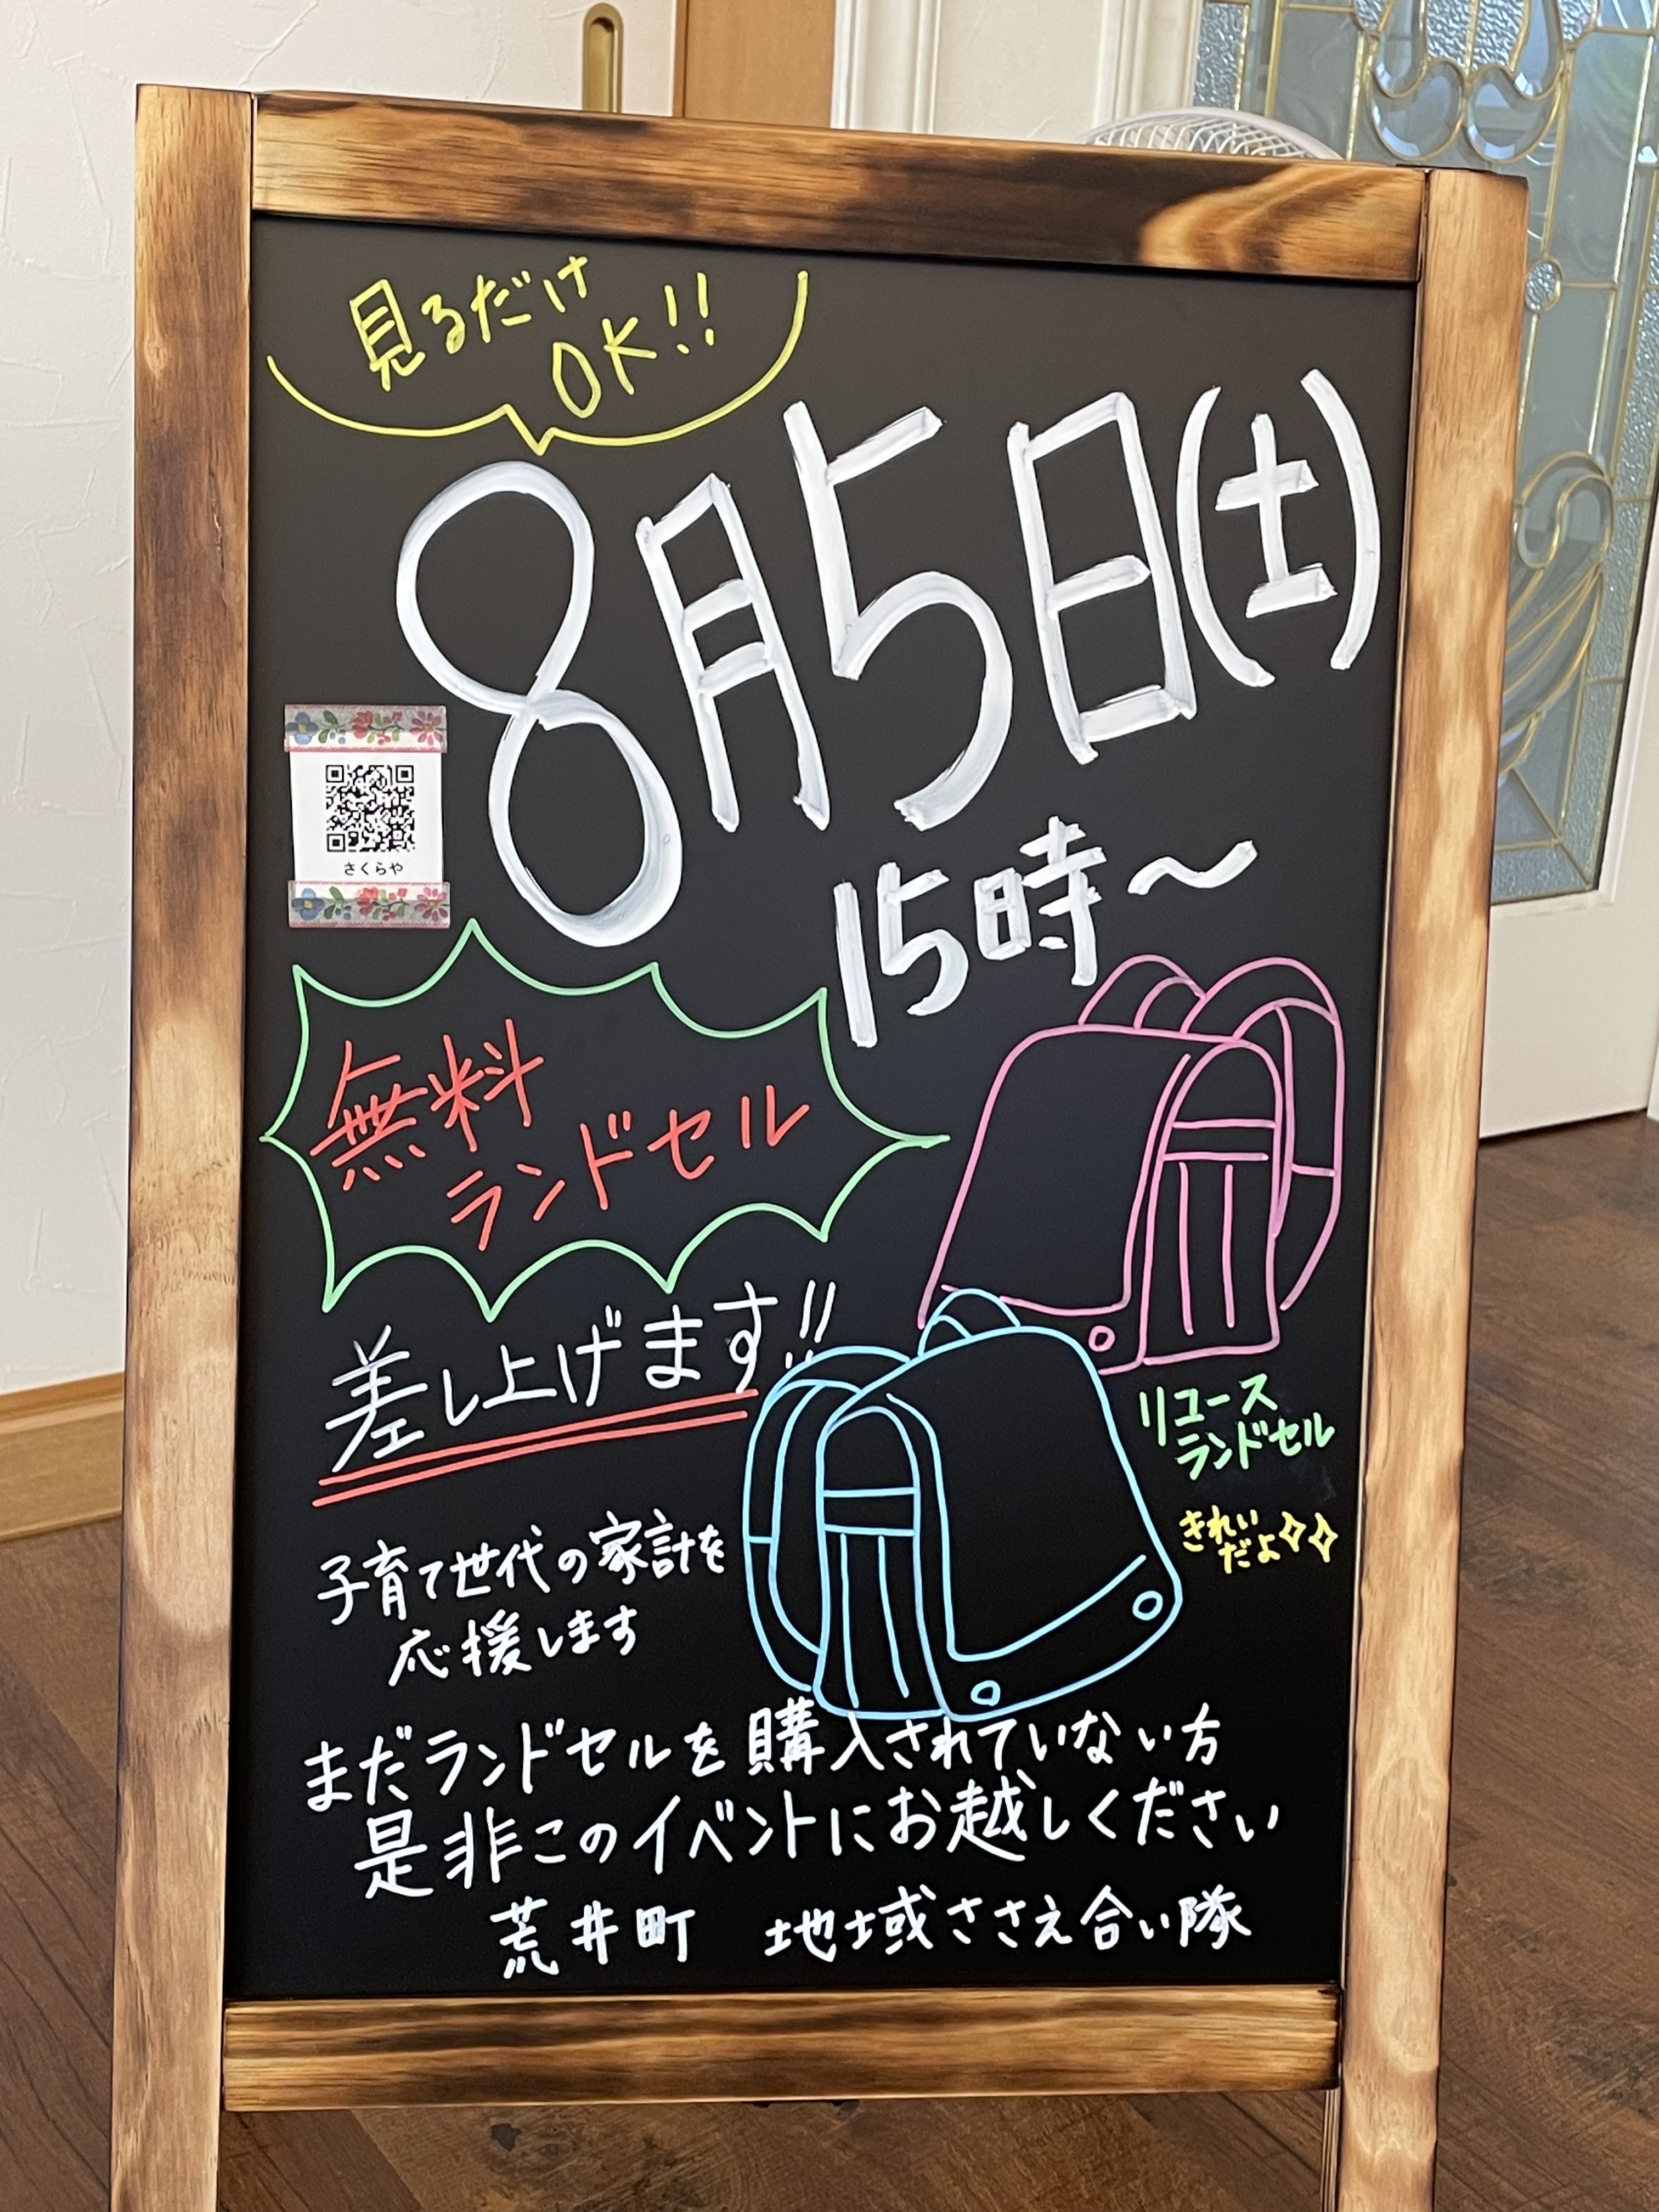 見るだけ
OK!!
8月5日(土)
15時～
さくらや
無料
ランドセル
差し上げます!!
リユース
ランドセル
きれい
だよ
子育て世代の家計を
応援します
まだランドセルを購入されていない方
是非このイベントにお越しください
荒井町 地域ささえ合い隊